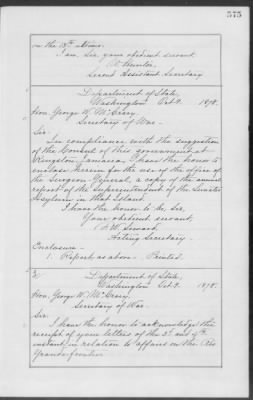 575
on the 18th ultimo.
I am, Sir, your obedient servant
W. Hunter,
Second Assistant Secretary
Department of State,
Washington Oct. 9. 1878.
Hon. George W. McCrary.
Secretary of War.
Sir:
In compliance with the suggestion
of the Consul of this government at
Kingston Jamaica, I have the honor to
enclose herein for the use of the office of
the Surgeon-General, a copy of the annual
report of the Superintendent of the Lunatic
Asylum in that Island.
I have the honor to be, Sir,
Your obedient servant,
F. W. Seward,
Acting Secretary.
Enclosure.
1. Report as above. Printed.
Department of State,
Washington Oct. 9. 1878.
Hon. George W. McCrary.
Secretary of War.
Sir:
I have the honor to acknowledge the
receipt of your letters of the 3d and 4th
instant, in relation to affairs on the Rio
Grande frontier